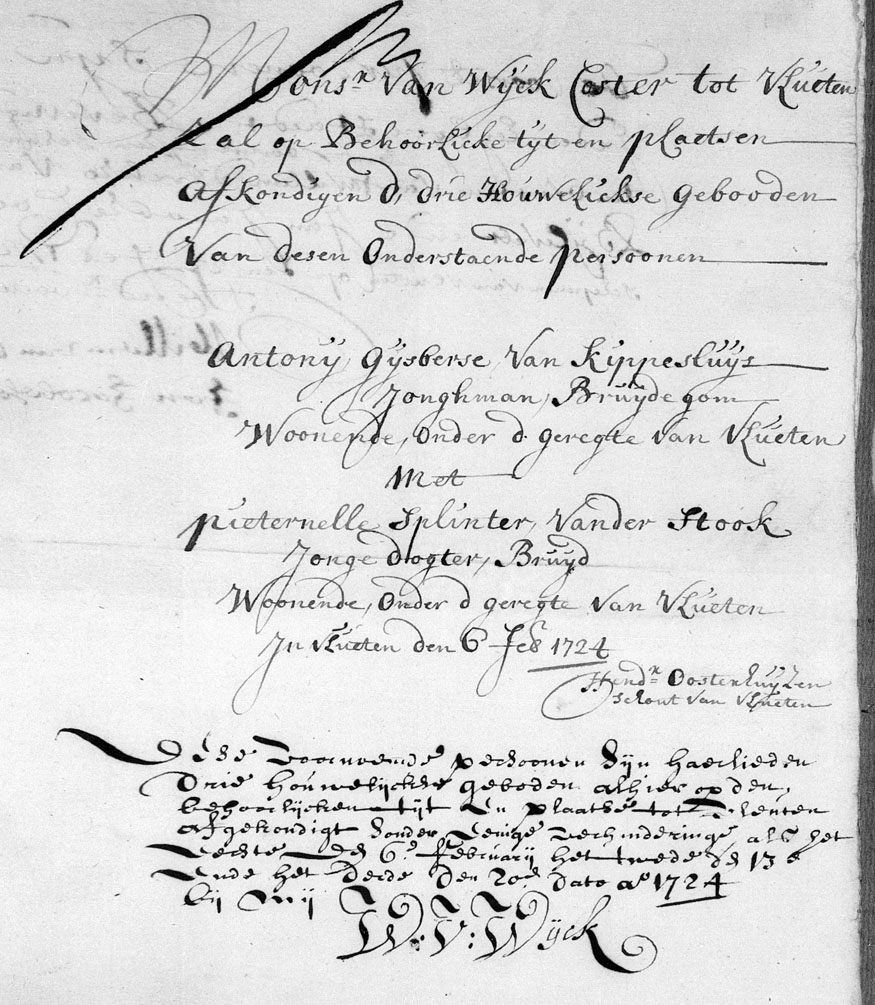 Monsr. Van Wyck Coster tot Vlueten
Zal op Behoorlicke tyt en plaetsen
afkondigen d, drie Houwelickse gebooden
Van desen Onderstaende persoonen
Antony, Gysberse, Van Kippesluys
Jonghman, Bruydegom
Woonende, Onder d. geregte van Vlueten
Met
Pieternelle Splinter, Vander Stook
Jonge dogter, Bruyd
Woonende, Onder d geregte Van Vlueten
In Vlueten den 6 Feb 1724
Hendr. Oostenhuyzen
Schout van Vlueten
Dese voornoemde persoonen sijn haerlieden
drie houwelijckse geboden alhier op den,
behoorlijcken tijt en plaathse tot Vleuten
afgekondigt sonder eenige verhinderinge, als het
eerste den 6e. februarij het twede den 13e
ende het derde den 20e. dato ao 1724
bij mij
W: V: Wijck